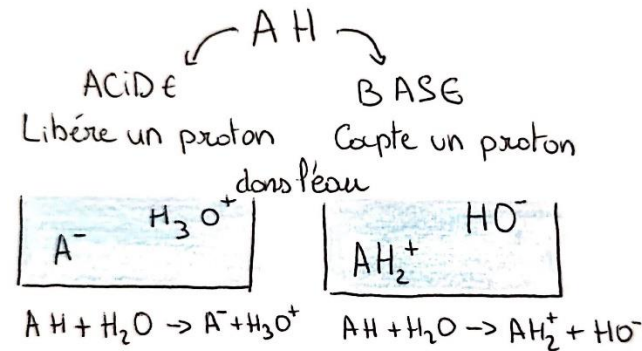 AH
ACIDE
BASE
Libère un proton
Capte un proton
dans l'eau
A⁻
H₃O⁺
AH₂⁺
HO⁻
AH + H₂O → A⁻ + H₃O⁺
AH + H₂O → AH₂⁺ + HO⁻